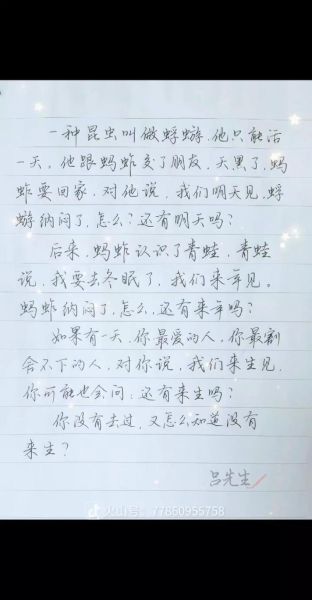 一种昆虫叫做蜉蝣,他只能活
一天,他跟蚂蚱交了朋友,天黑了,蚂
蚱要回家,对他说,我们明天见,蜉
蝣纳闷了,怎么?还有明天吗?
后来,蚂蚱认识了青蛙,青蛙
说,我要去冬眠了,我们来年见。
蚂蚱纳闷了,怎么,还有来年吗?
如果有一天,你最爱的人,你最割
舍不下的人,对你说,我们来生见,
你可能也会问:还有来生吗?
你没有去过,又怎么知道没有
来生?
吕先生
火山号:77860955758